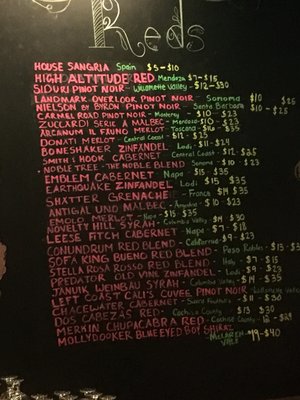 Reds
HOUSE SANGRIA Spain $5-$10
HIGH ALTITUDE RED Mendoza $7-$15
SIDURI PINOT NOIR - Willamette Valley - $12-$30
LANDMARK OVERLOOK PINOT NOIR - Sonoma $10 $25
NIELSON BY BYRON PINOT NOIR - Santa Barbara $10 - $25
CARMEL ROAD PINOT NOIR - Monterey - $10 $23
ZUCCARDI SERIE A MALBEC - Mendoza $10 - $23
ARCANUM IL FAUNO MERLOT - Toscana - $16 $35
DONATI MERLOT - Central Coast - $11 - $25
BONESHAKER ZINFANDEL Lodi - $11 - $24
SMITH & HOOK CABERNET - Central Coast - $12 $35
NOBLE TREE - THE NOBLE BLEND - Sonoma - $10 $23
EMBLEM CABERNET - Napa $15 $35
EARTHQUAKE ZINFANDEL Lodi $15 $35
SHATTER GRENACHE - France $14 $35
ANTIGAL UNO MALBEC - $10 $23
EMOLO MERLOT - Napa - $15 $35
NOVELTY HILL SYRAH - Columbia Valley - $14 $30
LEESE FITCH CABERNET - Napa - $7 - $18
CONUNDRUM RED BLEND - California - $9 - $23
SOFA KING BUENO RED BLEND - Paso Robles - $15 -
STELLA ROSA ROSSO RED BLEND - Italy - $7 - $15
PREDATOR OLD VINE ZINFANDEL - Lodi - $9 - $23
JANUIK WEINBAU SYRAH - Columbia Valley - $14 - $35
LEFT COAST CALI'S CUVEE PINOT NOIR
CHACEWATER CABERNET - Sierra Foothills - $11 - $30
DOS CABEZAS RED - Cochise County $13 $30
MERKIN CHUPACABRA RED - Cochise County
MOLLYDOOKER BLUE EYED BOY SHIRAZ McLAREN VALE $19-$40